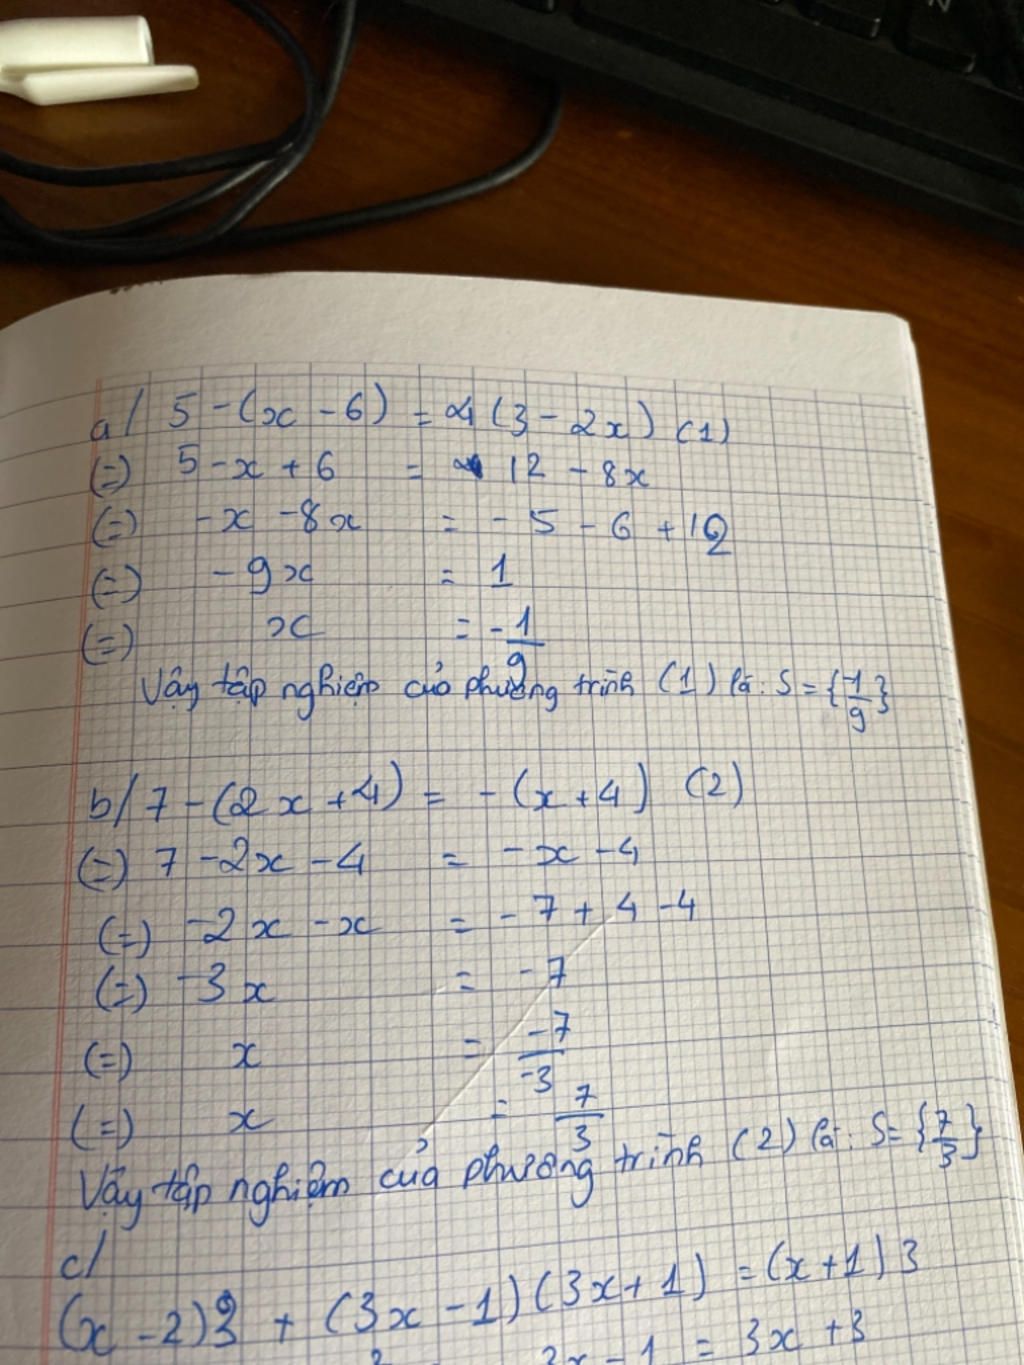 a/ 5 - (x - 6) = 4 (3 - 2x) (1)
(=) 5 - x + 6 = 12 - 8x
(=) - x - 8x = - 5 - 6 + 12
(=) - 9x = 1
(=) x = - 1/9
Vậy tập nghiệm của phương trình (1) là: S = {-1/9}
b/ 7 - (2x + 4) = - (x + 4) (2)
(=) 7 - 2x - 4 = - x - 4
(=) - 2x - x = - 7 + 4 - 4
(=) - 3x = - 7
(=) x = -7/-3
(=) x = 7/3
Vậy tập nghiệm của phương trình (2) là: S = {7/3}
c/
(x - 2)3 + (3x - 1)(3x + 1) = (x + 1)3
- 1 = 3x + 3